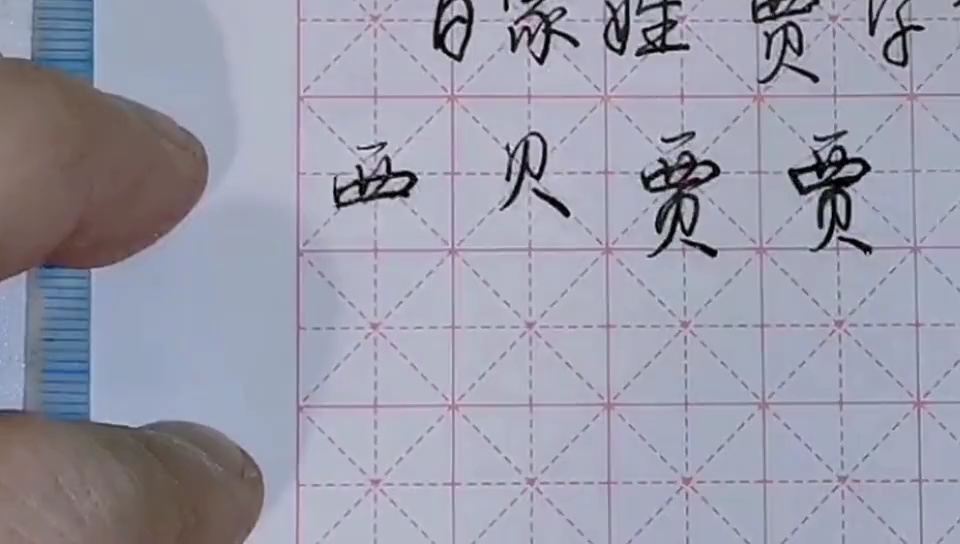 百家姓 贾 字
西 贝 贾 贾